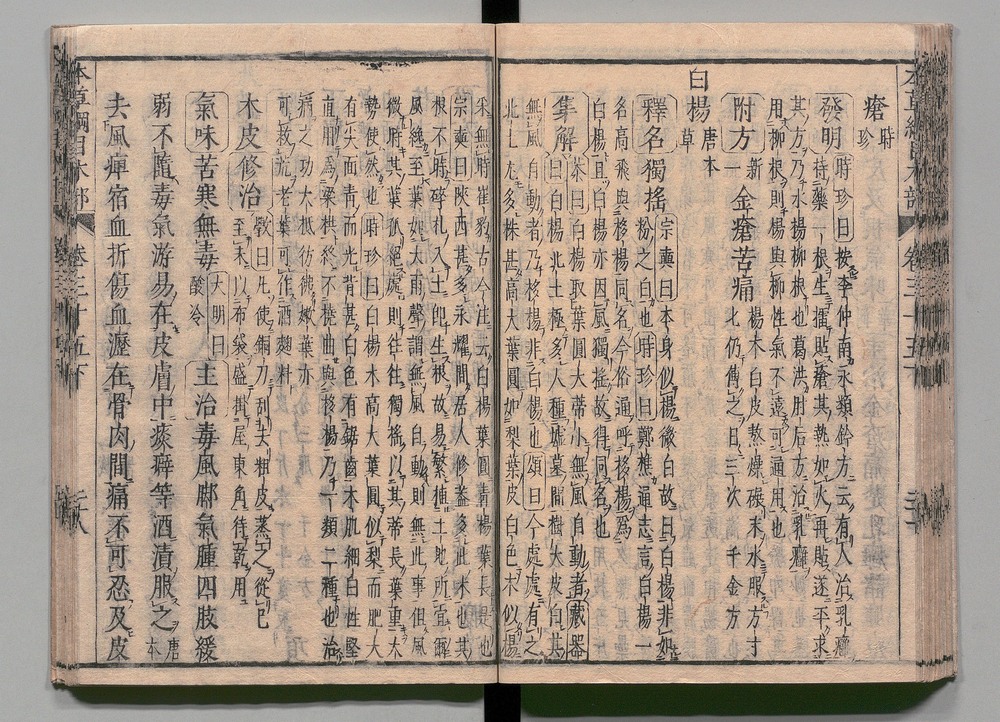 瘡 時珍
發明 時珍曰按李仲南永類鈐方云有人治乳癰
持藥一根生擂貼瘡其熱如火再貼遂平求
其方乃水楊柳根也葛洪肘后方治乳癰
用柳根則楊與柳性氣不遠可通用也
附方 一新 金瘡苦痛 楊木白皮熬燥碾末水服方寸
匕仍傅之日三次 千金方
白楊 唐本草
釋名獨搖 宗奭曰木身似楊微白故曰白楊非如
粉之白也時珍曰鄭樵通志言白楊一
名高飛與栘楊同名今俗通呼栘楊爲
白楊且白楊亦因風獨搖故得同名也
集解 恭曰白楊取葉圓大蒂小無風自動者藏器
曰白楊北土極多人種墟墓間樹大皮白其
無風自動者乃栘楊非白楊也頌曰今處處有之
北土尤多株甚高大葉圓如梨葉皮白色木似楊
采無時崔豹古今注云白楊葉圓青楊葉長是也
宗奭曰陝西甚多永耀間居人修蓋多此木也其
根不時碎札入土卽生根故易繁植土地所宜爾
風纔至葉如大雨聲謂無風自動則無此事但風
微時其葉孤絕處則往往獨搖以其蒂長葉重大
勢使然也時珍曰白楊木高大葉圓似梨而肥大
有尖面青而光背甚白色有鋸齒木肌細白性堅
直用爲梁栱終不橈曲與栘楊乃一類二種也治
病之功大抵彷彿嫩葉亦
可救荒老葉可作酒麴料
木皮修治 斅曰凡使銅刀刮去粗皮蒸之從巳
至未以布袋盛掛屋東角待乾用
氣味苦寒無毒 大明曰酸冷 主治毒風脚氣腫四肢緩
弱不隨毒氣游易在皮膚中痰癖等酒漬服之 唐本
去風痺宿血折傷血瀝在骨肉間痛不可忍及皮
本草綱目木部 卷三十五下